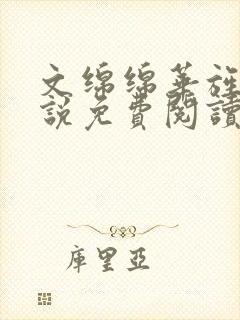 文綿綿華旌
說免費閱讀
庫里亞